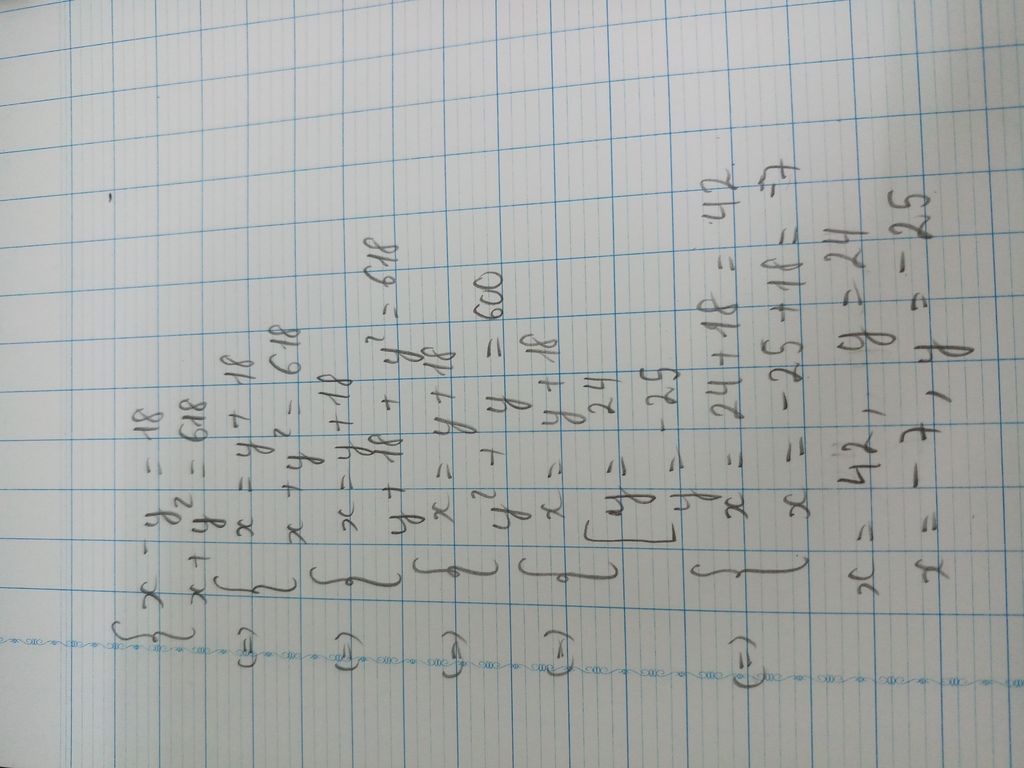 { x - y = 18
x + y² = 618
(=) { x = y + 18
x + y² = 618
(=) { x = y + 18
y + 18 + y² = 618
(=) { x = y + 18
y² + y = 600
(=) { x = y + 18
[ y = 24
y = -25
(=) { x = 24 + 18 = 42
x = -25 + 18 = -7
x = 42, y = 24
x = -7, y = -25